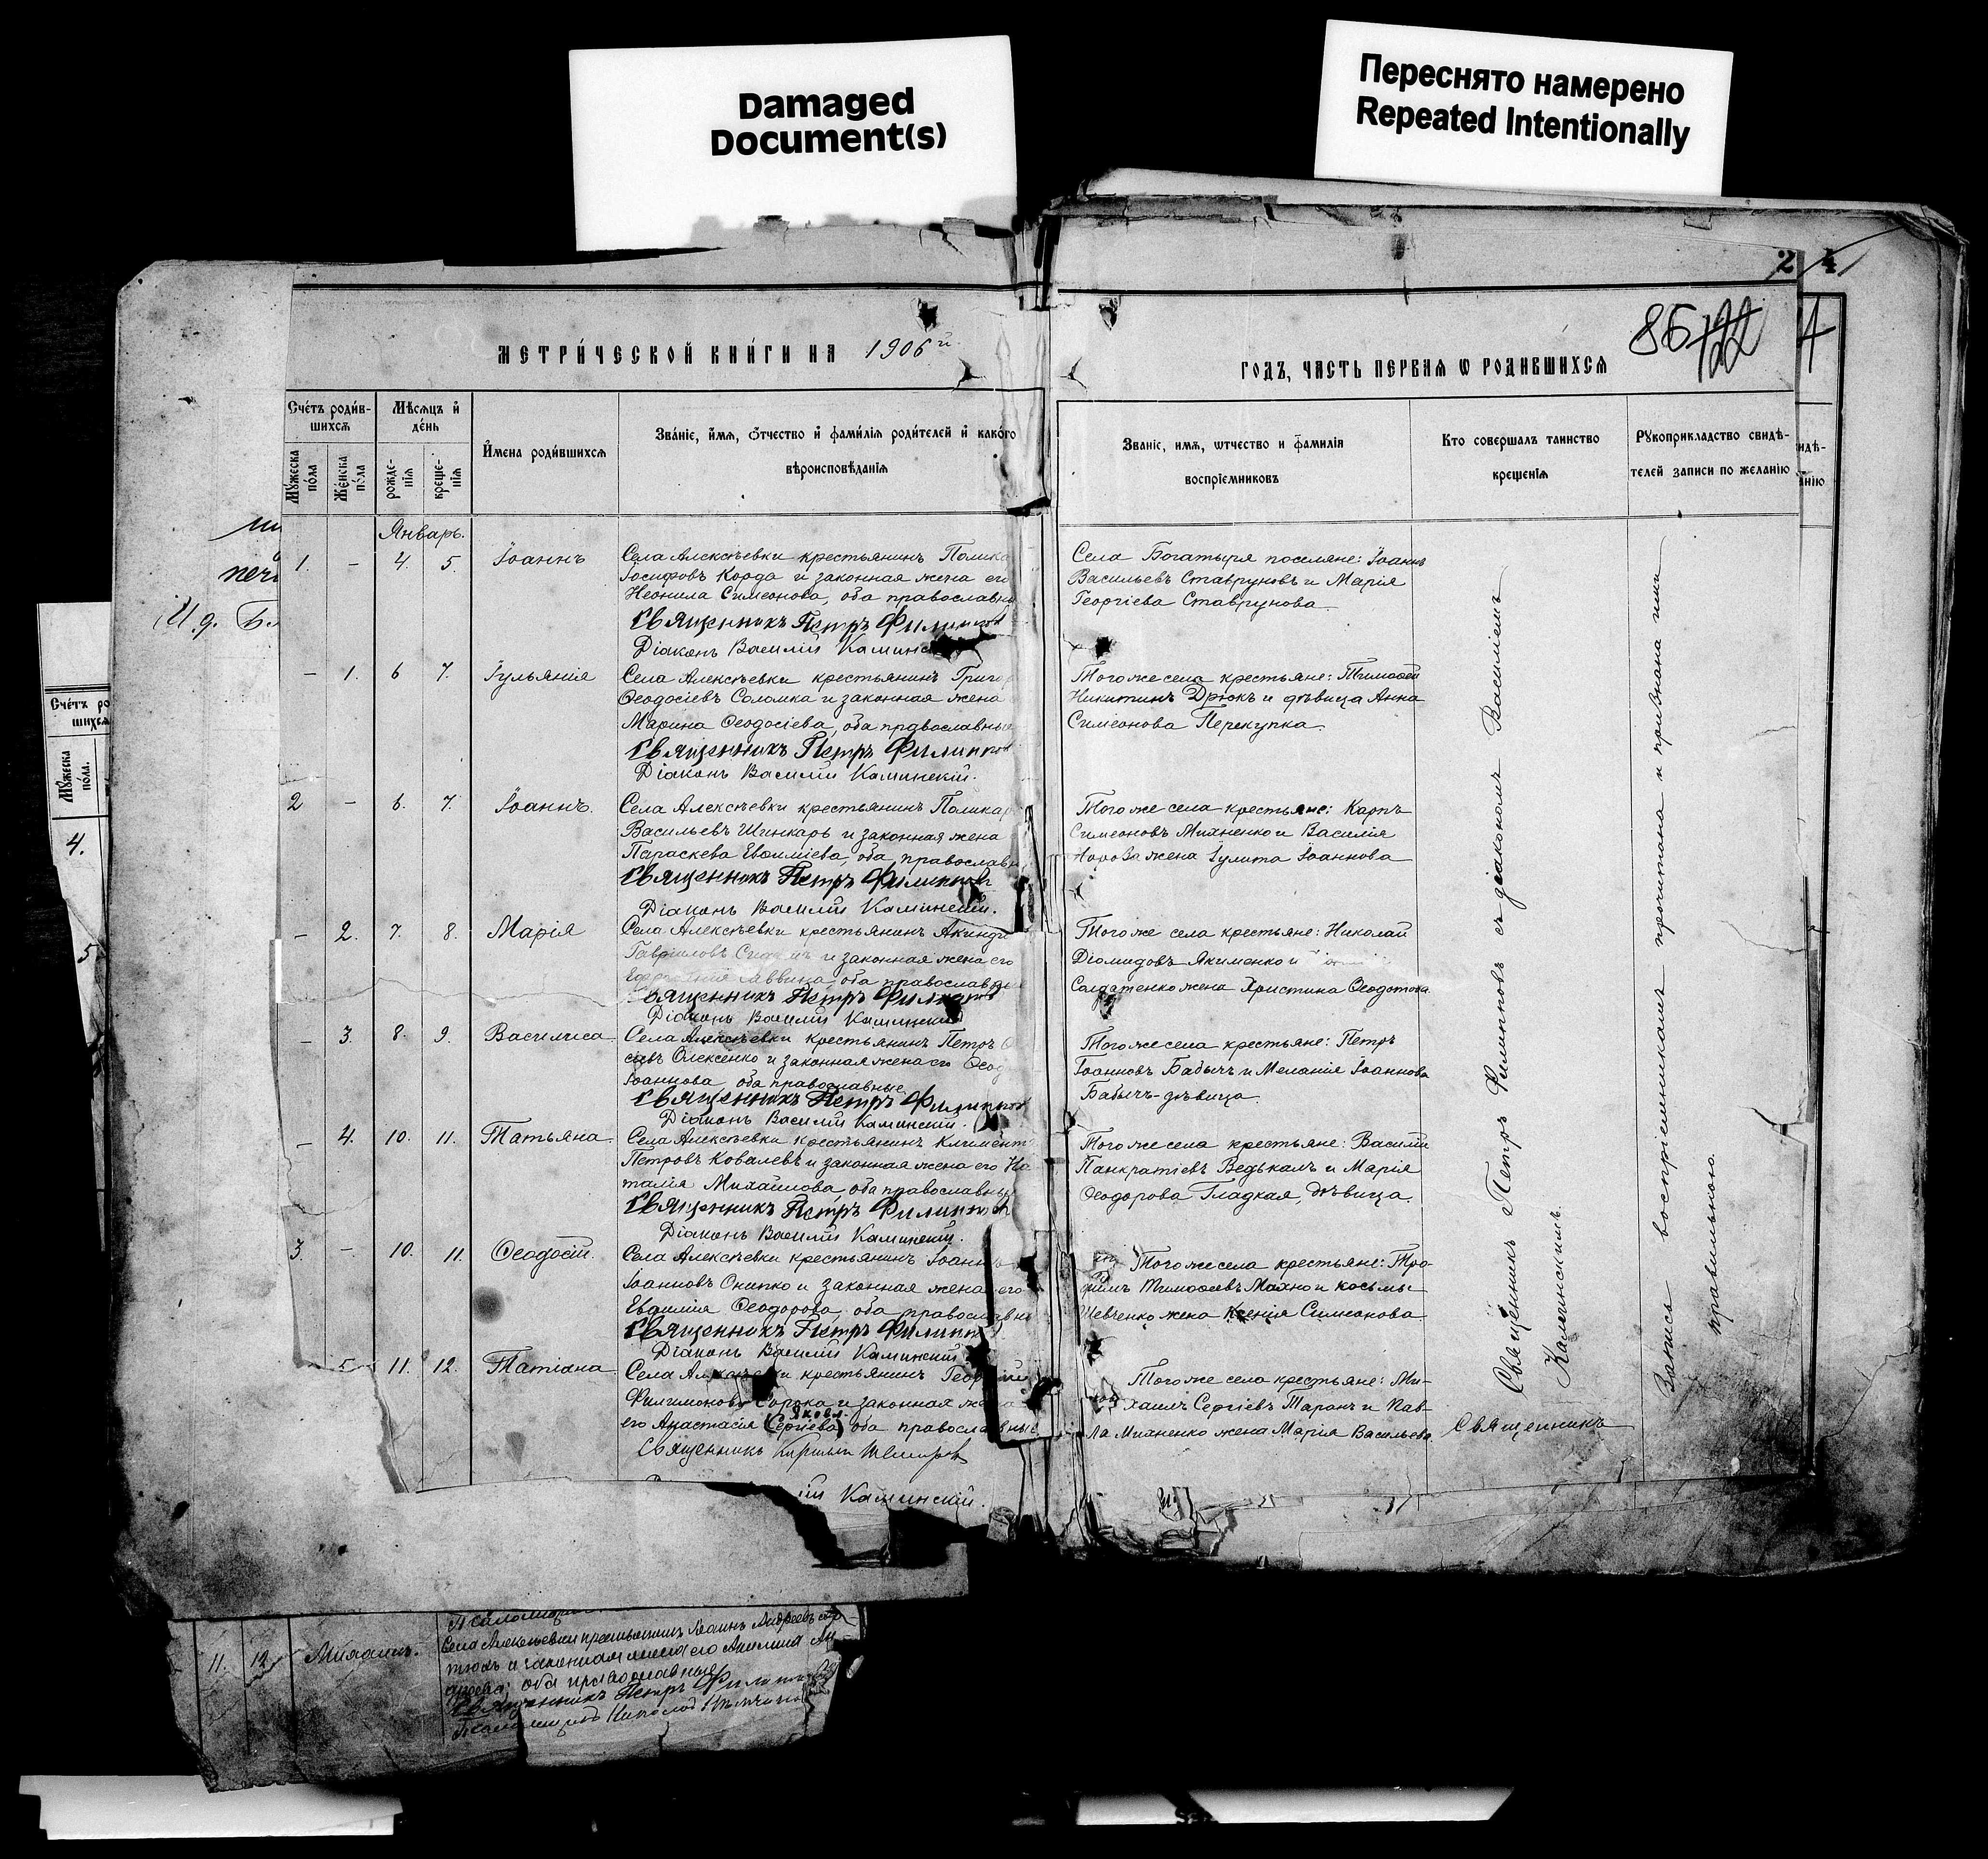 Damaged
Document(s)
Переснято намерено
Repeated Intentionally
2 4
86 122
МЕТРИЧЕСКОЙ КНИГИ НА 1906й
ГОДЪ, ЧАСТЬ ПЕРВАЯ Ѡ РОДИВШИХСЯ
Счетъ родив-
шихся
Мѣсяцъ и
день
Имена родившихся
Званіе, имя, Ѿчество и фамилія родителей и какого
вѣроисповѣданія
Мужеска
пола
Женска
пола
рожде-
нія
креще-
нія
Званіе, имя, ѡтчество и фамилія
воспріемниковъ
Кто совершалъ таинство
крещенія
Рукоприкладство свидѣ-
телей записи по желанію
Январь.
1. - 4. 5. Іоаннъ
Села Алексѣевки крестьянинъ
Іосифовъ Корда и законная жена его
Неонила Симеонова, оба православн
Священникъ Петръ Филиппов
Діаконъ Василій
Села Богатыря поселяне: Іоаннъ
Васильевъ Ставруновъ и Марія
Георгіева Ставрунова
- 1. 6 7. Іульянія
Села Алексѣевки крестьянинъ
Ѳеодосіевъ Соломка и законная жена
Марина Ѳеодосіева, оба православные
Священникъ Петръ Филиппов
Діаконъ Василій Каминскій.
Того же села крестьяне: Тимоѳей
Никитинъ Дрюкъ и дѣвица Анна
Симеонова Перекупка.
2 - 6. 7. Іоаннъ.
Села Алексѣевки крестьянинъ
Васильевъ Шинкарь и законная жена
Параскева Евѳиміева, оба православн
Священникъ Петръ Филиппов
Діаконъ Василій Каминскій.
Того же села крестьяне: Карпъ
Симеоновъ Михненко и Василія
жена Іулита Іоаннова
- 2. 7. 8. Марія
Села Алексѣевки крестьянинъ
Гавріиловъ и законная жена его
Саввина, оба православн
Священникъ Петръ Филиппов
Діаконъ Василій Каминскій
Того же села крестьяне: Николай
Діомидовъ Якименко и
Солдатенко жена Христина Ѳеодотова
- 3. 8. 9. Василиса
Села Алексѣевки крестьянинъ Петръ
Олексенко и законная жена его
Іоаннова, оба православные
Священникъ Петръ Филиппов
Діаконъ Василій Каминскій.
Того же села крестьяне: Петръ
Іоанновъ Бабычъ и Меланія Іоаннова
Бабычъ - дѣвица.
- 4. 10. 11. Татьяна.
Села Алексѣевки крестьянинъ Климентъ
Петровъ Ковалевъ и законная жена его На
талія Михайлова, оба православны
Священникъ Петръ Филиппов
Діаконъ Василій Каминскій.
Того же села крестьяне: Василій
Панкратіевъ Ведькалъ и Марія
Ѳеодорова Гладкая, дѣвица.
3. - 10. 11. Ѳеодосій.
Села Алексѣевки крестьянинъ Іоаннъ
Іоанновъ Онипко и законная жена его
Евдимія Ѳеодорова, оба православн
Священникъ Петръ Филиппов
Діаконъ Василій Каминскій
Того же села крестьяне: Тро-
фимъ Тимоѳеевъ Махно и Косьмы
Шевченко жена Ксенія Симеонова
5. 11. 12. Татіана
Села Алексѣевки крестьянинъ Георгій
Филимоновъ Сорока и законная жена
Яковл.
его Анастасія (Сергіева) оба православные
Священникъ Кириллъ
Каминскій.
Того же села крестьяне: Ми-
хаилъ Сергіевъ Таранъ и Пав-
ла Михненко жена Марія Васильева.
Священникъ Петръ Филипповъ съ діакономъ Василіемъ
Каминскимъ.
Священникъ
Запись воспріемникамъ прочитана и признана ими
правильною.
И.д.
Счетъ ро
шихся
Мужеска
пола.
4.
5
11. 12 Михаилъ.
Села Алексѣевки крестьянинъ Іоаннъ Андреевъ
и законная жена его
оба православные
Священникъ Петръ